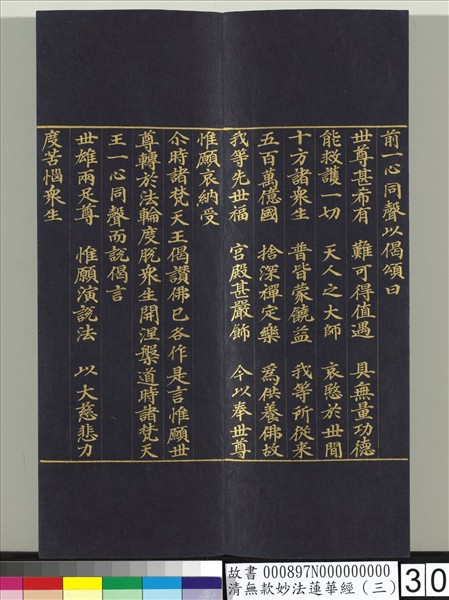 前一心同聲以偈頌曰
世尊甚希有　難可得值遇　具無量功德
能救護一切　天人之大師　哀愍於世間
十方諸衆生　普皆蒙饒益　我等所從來
五百萬億國　捨深禪定樂　為供養佛故
我等先世福　宮殿甚嚴飾　今以奉世尊
惟願哀納受
尒時諸梵天王偈讚佛已各作是言惟願世
尊轉於法輪度脫衆生開涅槃道時諸梵天
王一心同聲而說偈言
世雄兩足尊　惟願演說法　以大慈悲力
度苦惱衆生
故書 000897N000000000
清無款妙法蓮華經（三）
30